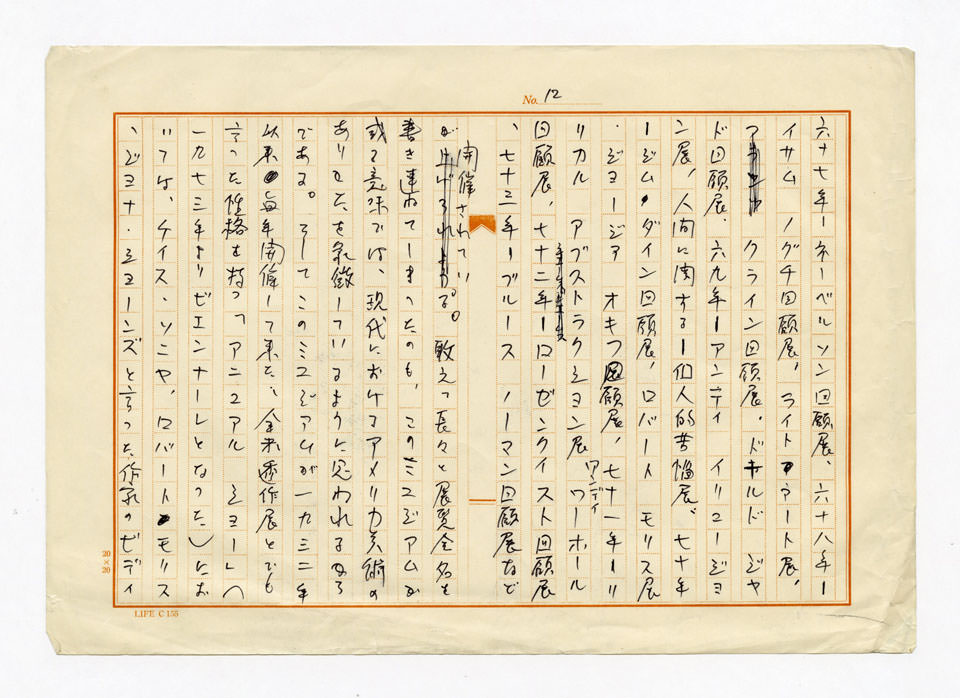 No. 12
六十七年ーネーベルソン回顧展、六十八年ー
イサム ノグチ回顧展、ライト アート展、
フランツ クライン回顧展、ドナルド ジャ
ド回顧展、六九年ーアンティ イリュージョ
ン展、人間に関するー個人的苦悩展、七十年
ージム・ダイン回顧展、ロバート モリス展
・ジョージア オキフ回顧展、七十一年ーリ
リカル アブストラクション展 アンディ ワーホール
回顧展、七十二年ーローゼンクイスト回顧展
、七十三年ーブルース ノーマン回顧展など
が開催されている。敢えて長々と展覧会名を
書き連ねてしまったのも、このミュジアムが
或る意味では、現代におけるアメリカ美術の
ありかたを象徴しているように思われるから
である。そしてこのミュジアムが一九三二年
以来毎年開催して来た、全米秀作展とでも
言った性格を持つアニュアル ショー(
一九七三年よりビエンナーレとなった)にお
いては、ケイス・ソニヤ、ロバート・モリス
、ジョナ・ショーンズと言った作家のビディ
20×20
LIFE C 155